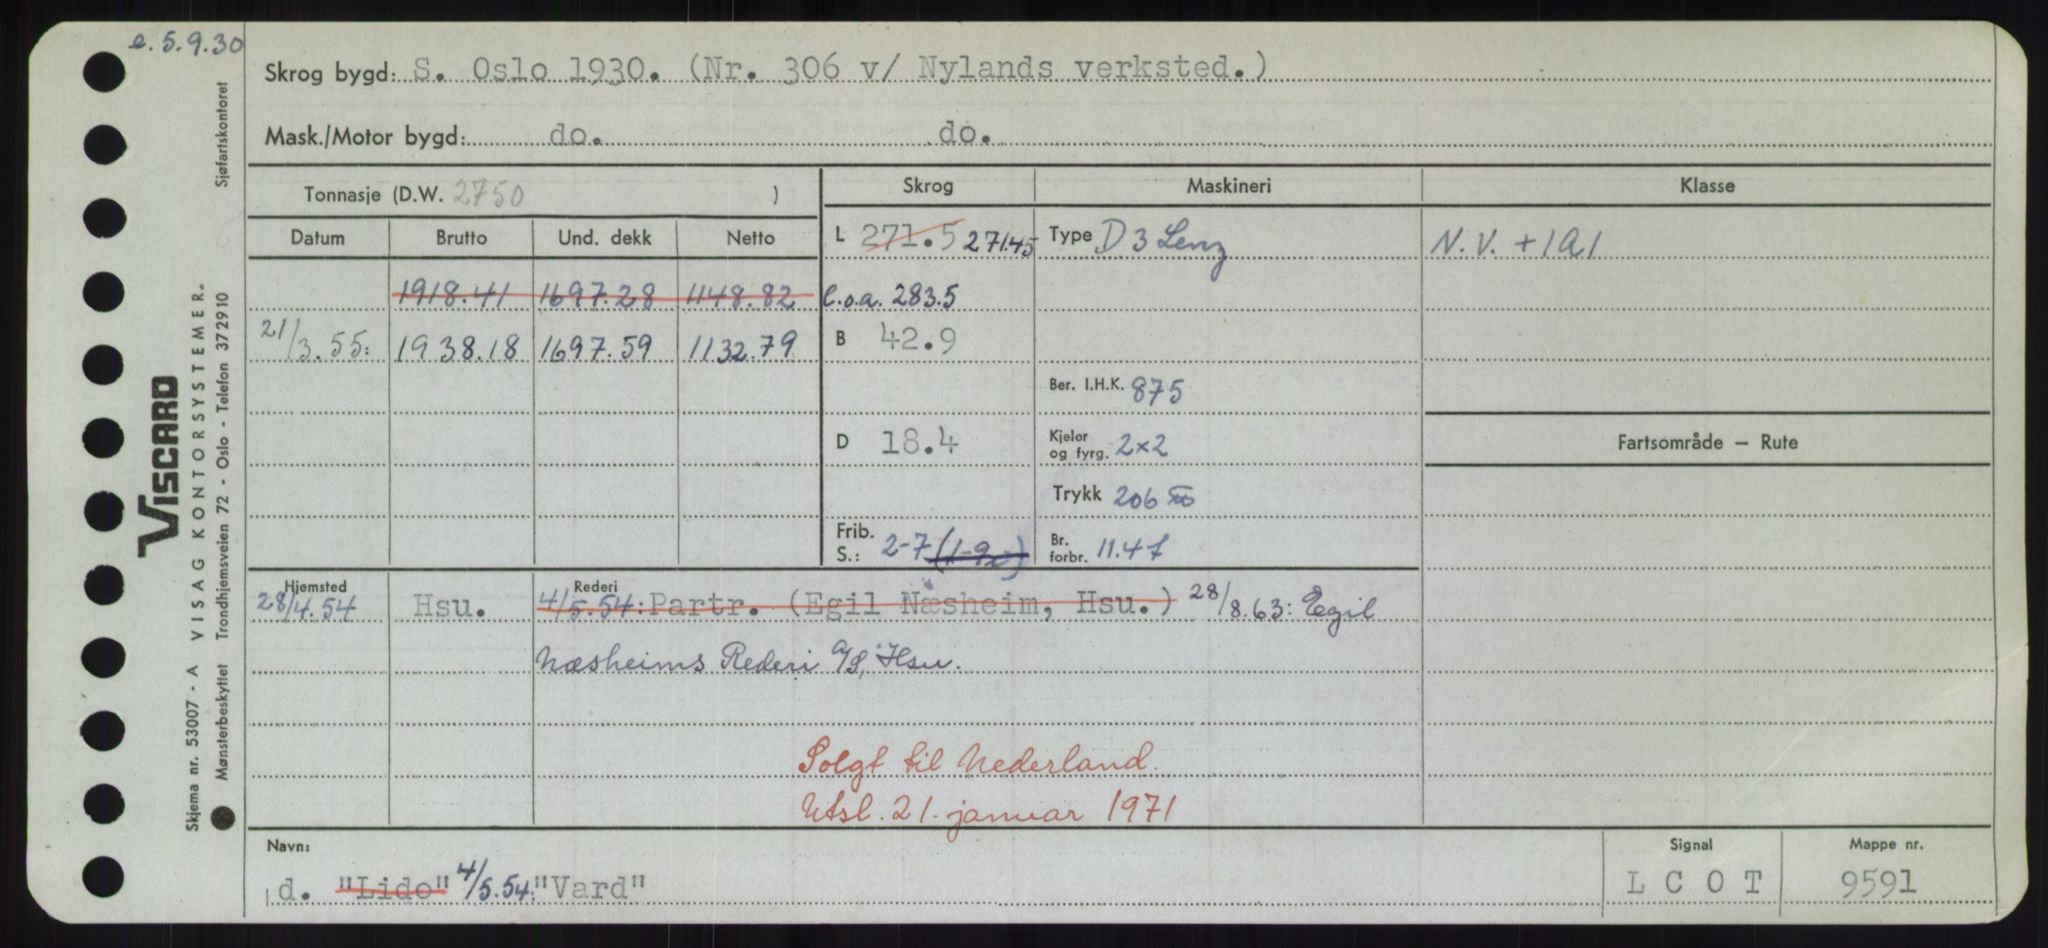 e. 5.9.30
Skrog bygd: S. Oslo 1930. (Nr. 306 v/ Nylands verksted.)
Mask./Motor bygd: do. do.
Tonnasje (D.W. 2750 )
Skrog Maskineri Klasse
Datum Brutto Und. dekk Netto
L 271.5 271.45 Type D 3 Lenz N.V. +1A1
1918.41 1697.28 1148.82 l.o.a. 283.5
21/3.55: 1938.18 1697.59 1132.79 B 42.9
Ber. I.H.K. 875
D 18.4 Kjeler og fyrg. 2x2 Fartsområde – Rute
Trykk 206
Frib. S.: 2-7 Br. forbr. 11.4
Hjemsted Rederi
28/4.54 Hsu. 4/5.54: Partr. (Egil Næsheim, Hsu.) 28/8.63: Egil
Næsheims Rederi A/S, Hsu.
Solgt til Nederland.
Utsl. 21. januar 1971
Navn: Signal Mappe nr.
d. "Lido" 4/5.54: "Vard" L C O T 9591
VISCARD
Skjema nr. 53007 - A VISAG KONTORSYSTEMER.
Mønsterbeskyttet Trondhjemsveien 72 - Oslo - Telefon 372910 Sjøfartskontoret